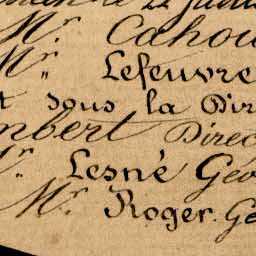 Mr Cahou
Mr " Lefeuvre
t sous la Dir
mbert Direc
r. Lesné Géo
Mr. Roger. Gé